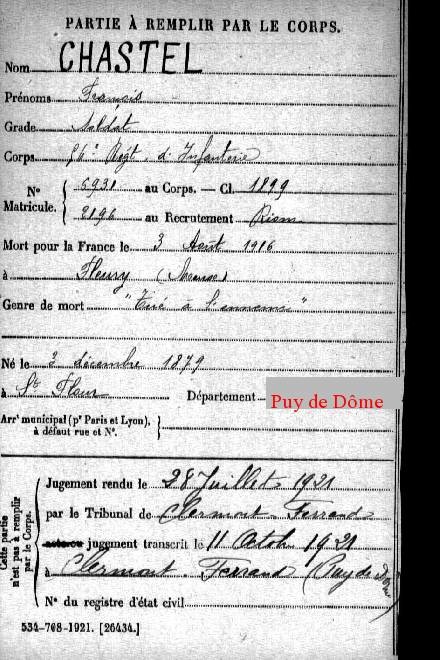 PARTIE À REMPLIR PAR LE CORPS.
Nom CHASTEL
Prénoms François
Grade Soldat
Corps 96e Régt d'Infanterie
N° Matricule. 6931 au Corps. — Cl. 1899
2196 au Recrutement Riom
Mort pour la France le 3 Août 1916
à Fleury (Meuse)
Genre de mort "Tué à l'ennemi"
Né le 3 décembre 1879
à St Flour Département Puy de Dôme
Arrt municipal (pr Paris et Lyon),
à défaut rue et N°.
Cette partie n'est pas à remplir par le Corps.
Jugement rendu le 28 Juillet 1921
par le Tribunal de Clermont-Ferrand
jugement transcrit le 11 Octob 1921
à Clermont-Ferrand (Puy de Dôme)
N° du registre d'état civil
534-708-1921. [26434.]